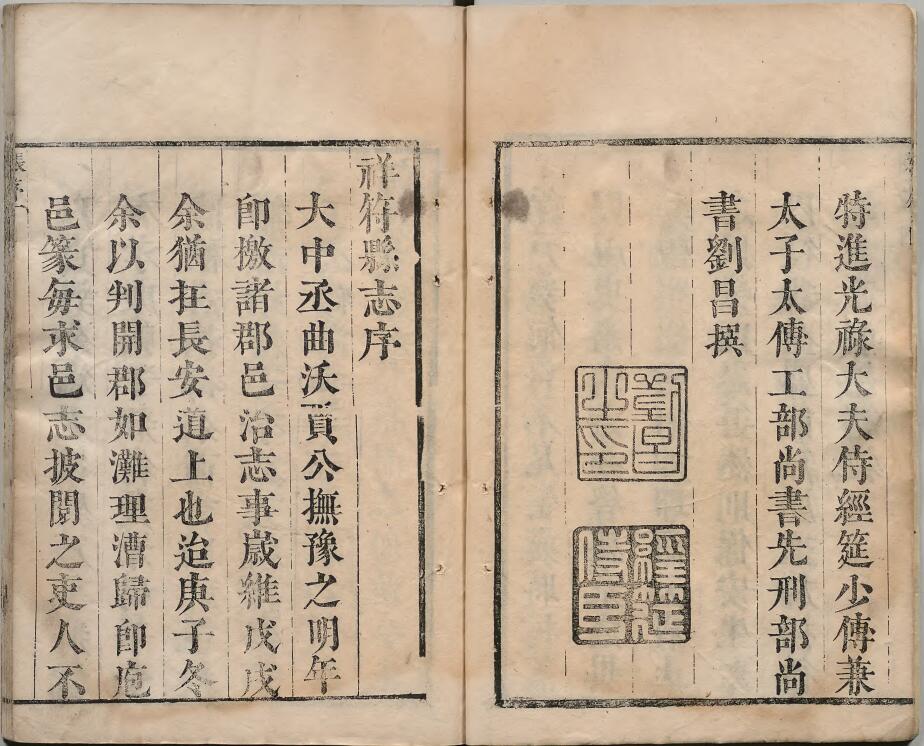 特進光祿大夫侍經筵少傅兼
太子太傅工部尚書先刑部尚
書劉昌撰
劉昌之印
經筵侍臣
祥符縣志序
大中丞曲沃賈公撫豫之明年
卽檄諸郡邑治志事歲維戊戌
余猶在長安道上也迨庚子冬
余以判開郡如灘理漕歸卽庖
邑篆每求邑志披閱之吏人不